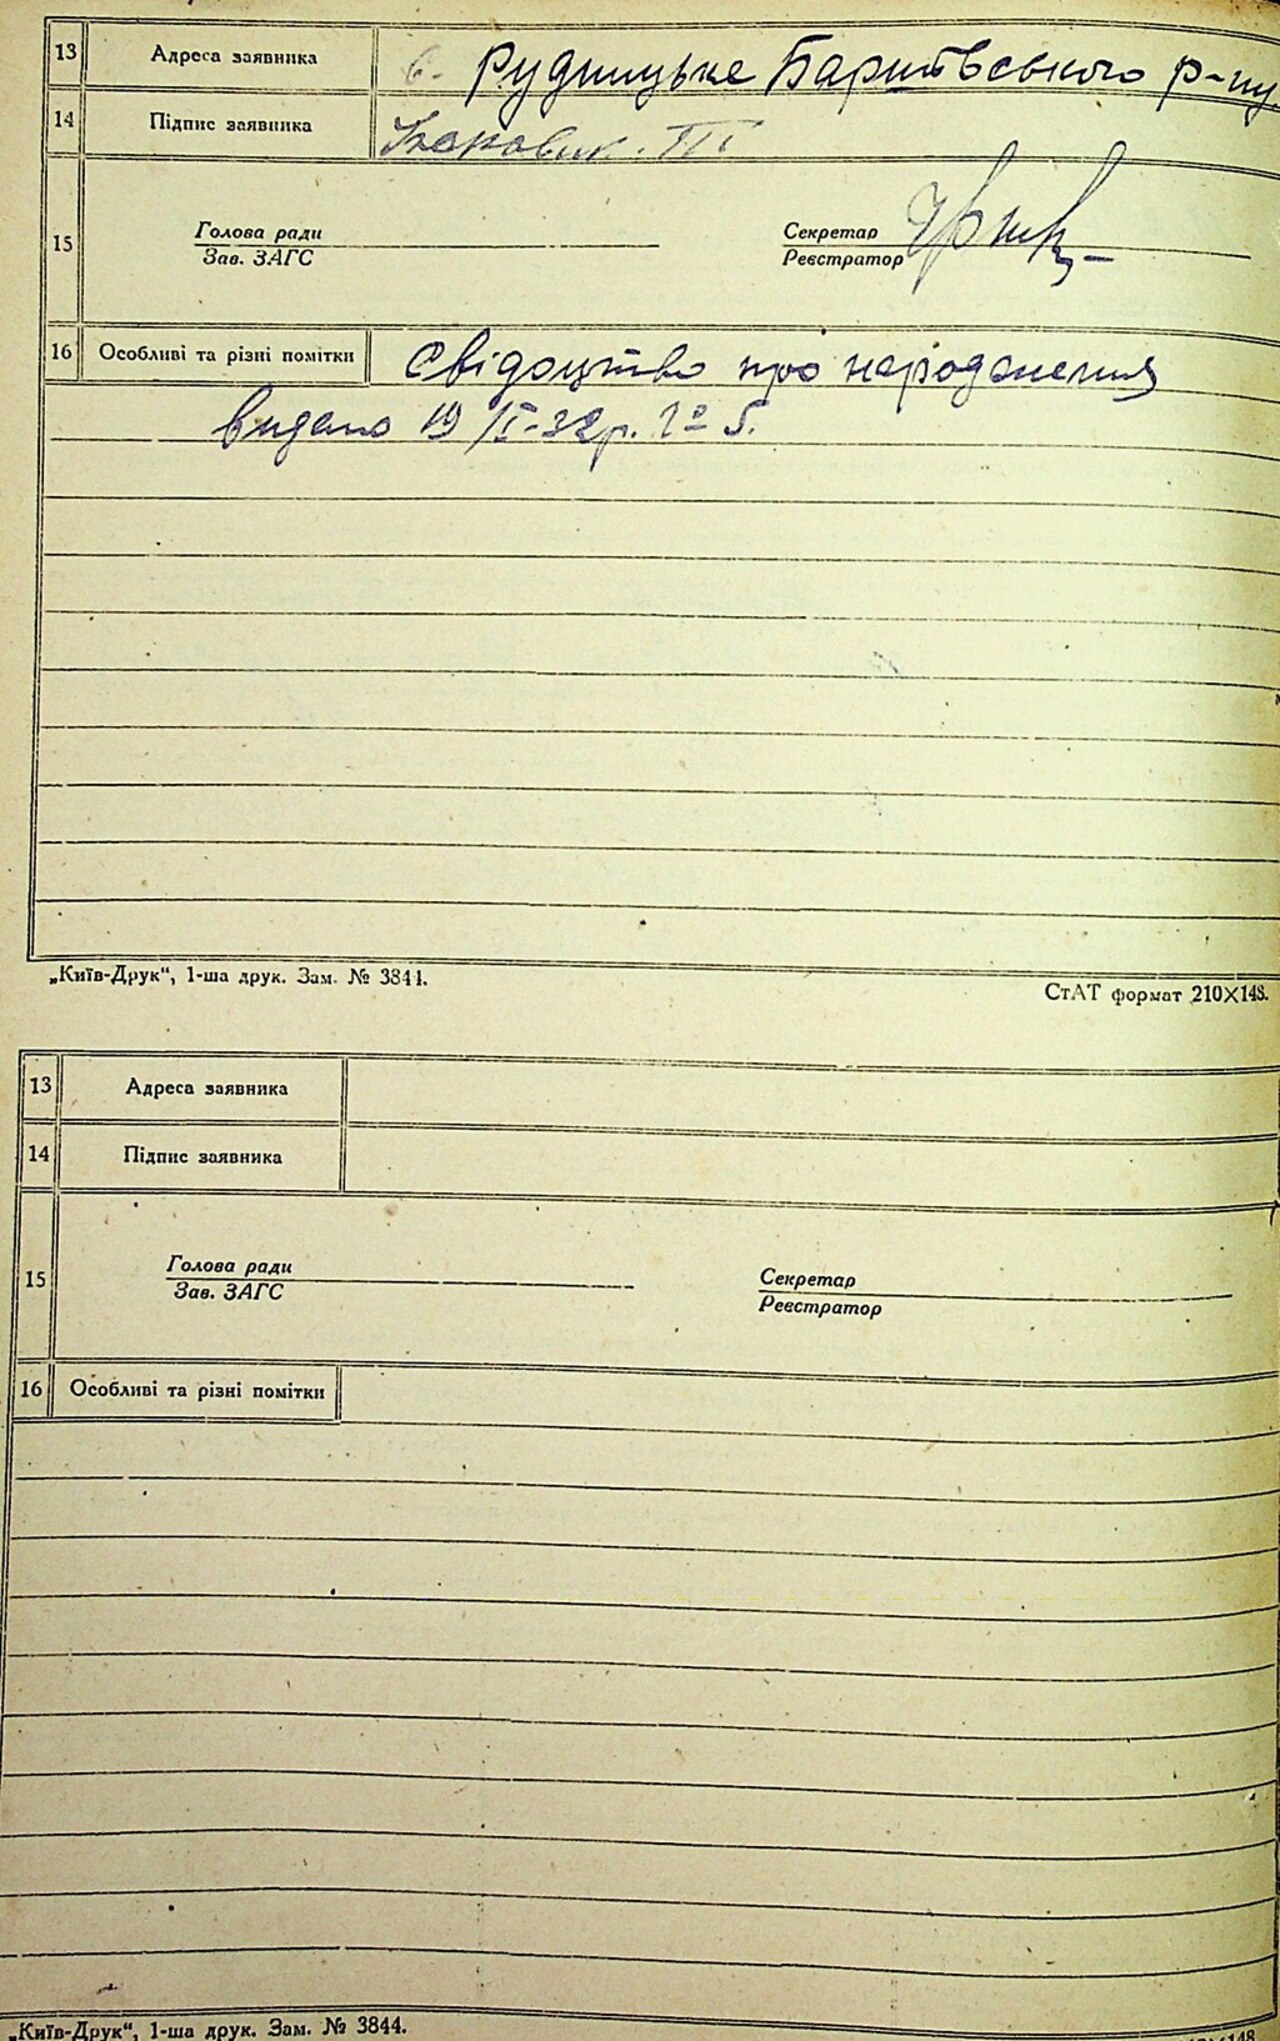 13 Адреса заявника с. Рудницьке Баришівського р-ну
14 Підпис заявника
15 Голова ради Секретар
Зав. ЗАГС Реєстратор
16 Особливі та різні помітки Свідоцтво про народження
видано 19/I-32р. № 5.
„Київ-Друк“, 1-ша друк. Зам. № 3844.
СтАТ формат 210X148.
13 Адреса заявника
14 Підпис заявника
15 Голова ради Секретар
Зав. ЗАГС Реєстратор
16 Особливі та різні помітки
„Київ-Друк“, 1-ша друк. Зам. № 3844.